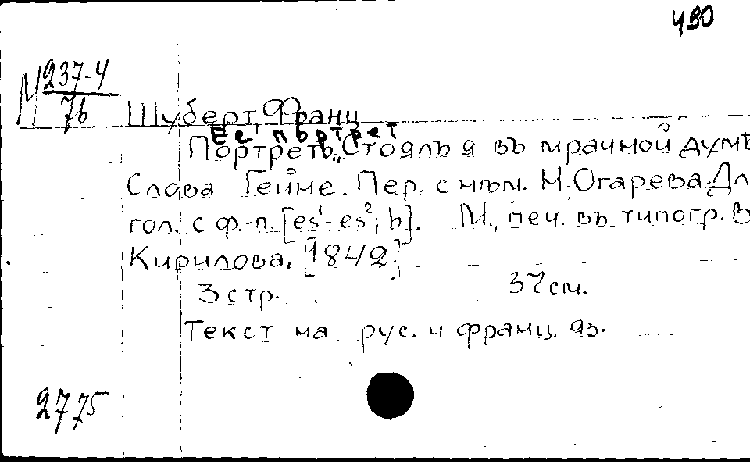 490
М 237-4
76
Шуберт, Франц
Ее портрет
Портретъ. „Стоялъ я въ мрачной думѣ
Слова Гейне. Пер. с нѣм. Н. Огарева. Дл
гол. с ф.-п. [es¹-es²; b]. М., печ. въ типогр. В
Кирилова. [1842]
3 стр. 37 см.
Текст на рус. и франц. яз.
2775